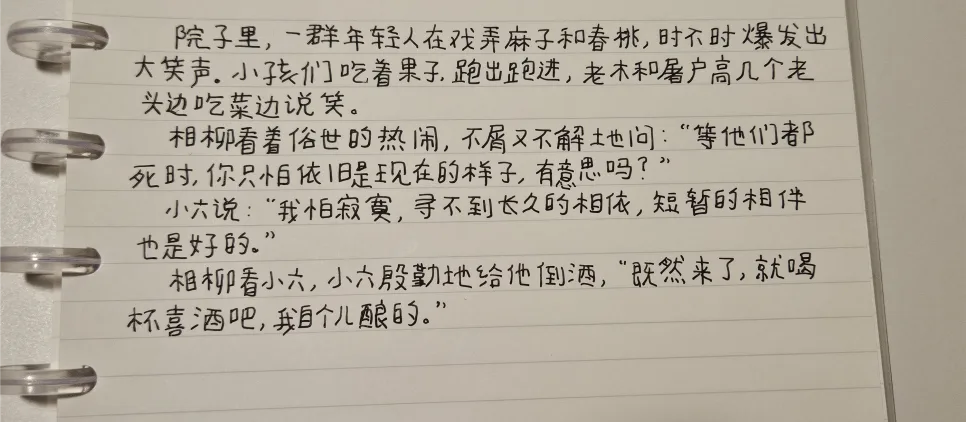 院子里，一群年轻人在戏弄麻子和春桃，时不时爆发出
大笑声。小孩们吃着果子，跑出跑进，老木和屠户高几个老
头边吃菜边说笑。
相柳看着俗世的热闹，不屑又不解地问：“等他们都
死时，你只怕依旧是现在的样子，有意思吗？”
小六说：“我怕寂寞，寻不到长久的相依，短暂的相伴
也是好的。”
相柳看小六，小六殷勤地给他倒酒，“既然来了，就喝
杯喜酒吧，我自个儿酿的。”